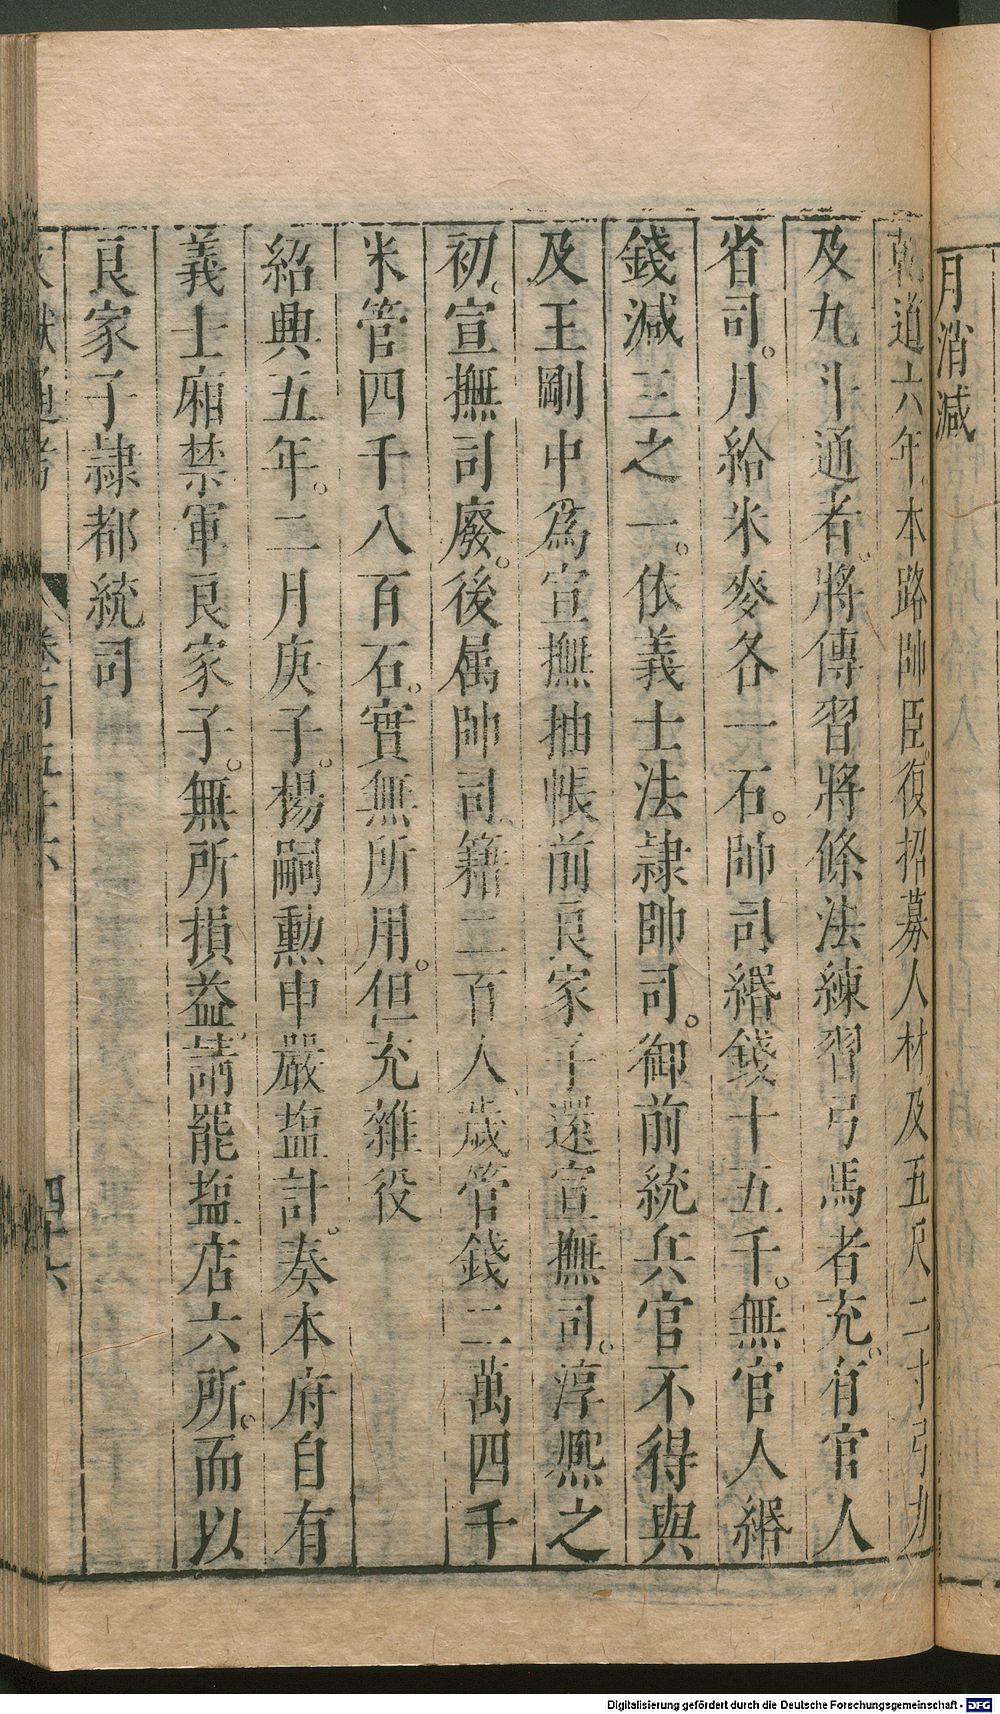 月消減
乾道六年本路帥臣復招募人材及五尺二寸弓力
及九斗通者。將傳習將條法練習弓馬者充。有官人
省司。月給米麥各一石。帥司緡錢十五千。無官人緡
錢減三之一。依義士法隷帥司。御前統兵官不得與
及王剛中為宣撫抽帳前良家子還宣撫司。淳熈之
初。宣撫司廢。後属帥司籍二百人歲管錢二萬四千
米管四千八百石。實無所用。但充雜役
紹興五年。二月庚子。楊嗣勲申嚴塩計。奏本府自有
義士廂禁軍良家子。無所損益。請罷塩店六所。而以
良家子隷都統司
文獻通考 卷百五十六 四十六
Digitalisierung gefördert durch die Deutsche Forschungsgemeinschaft - DFG